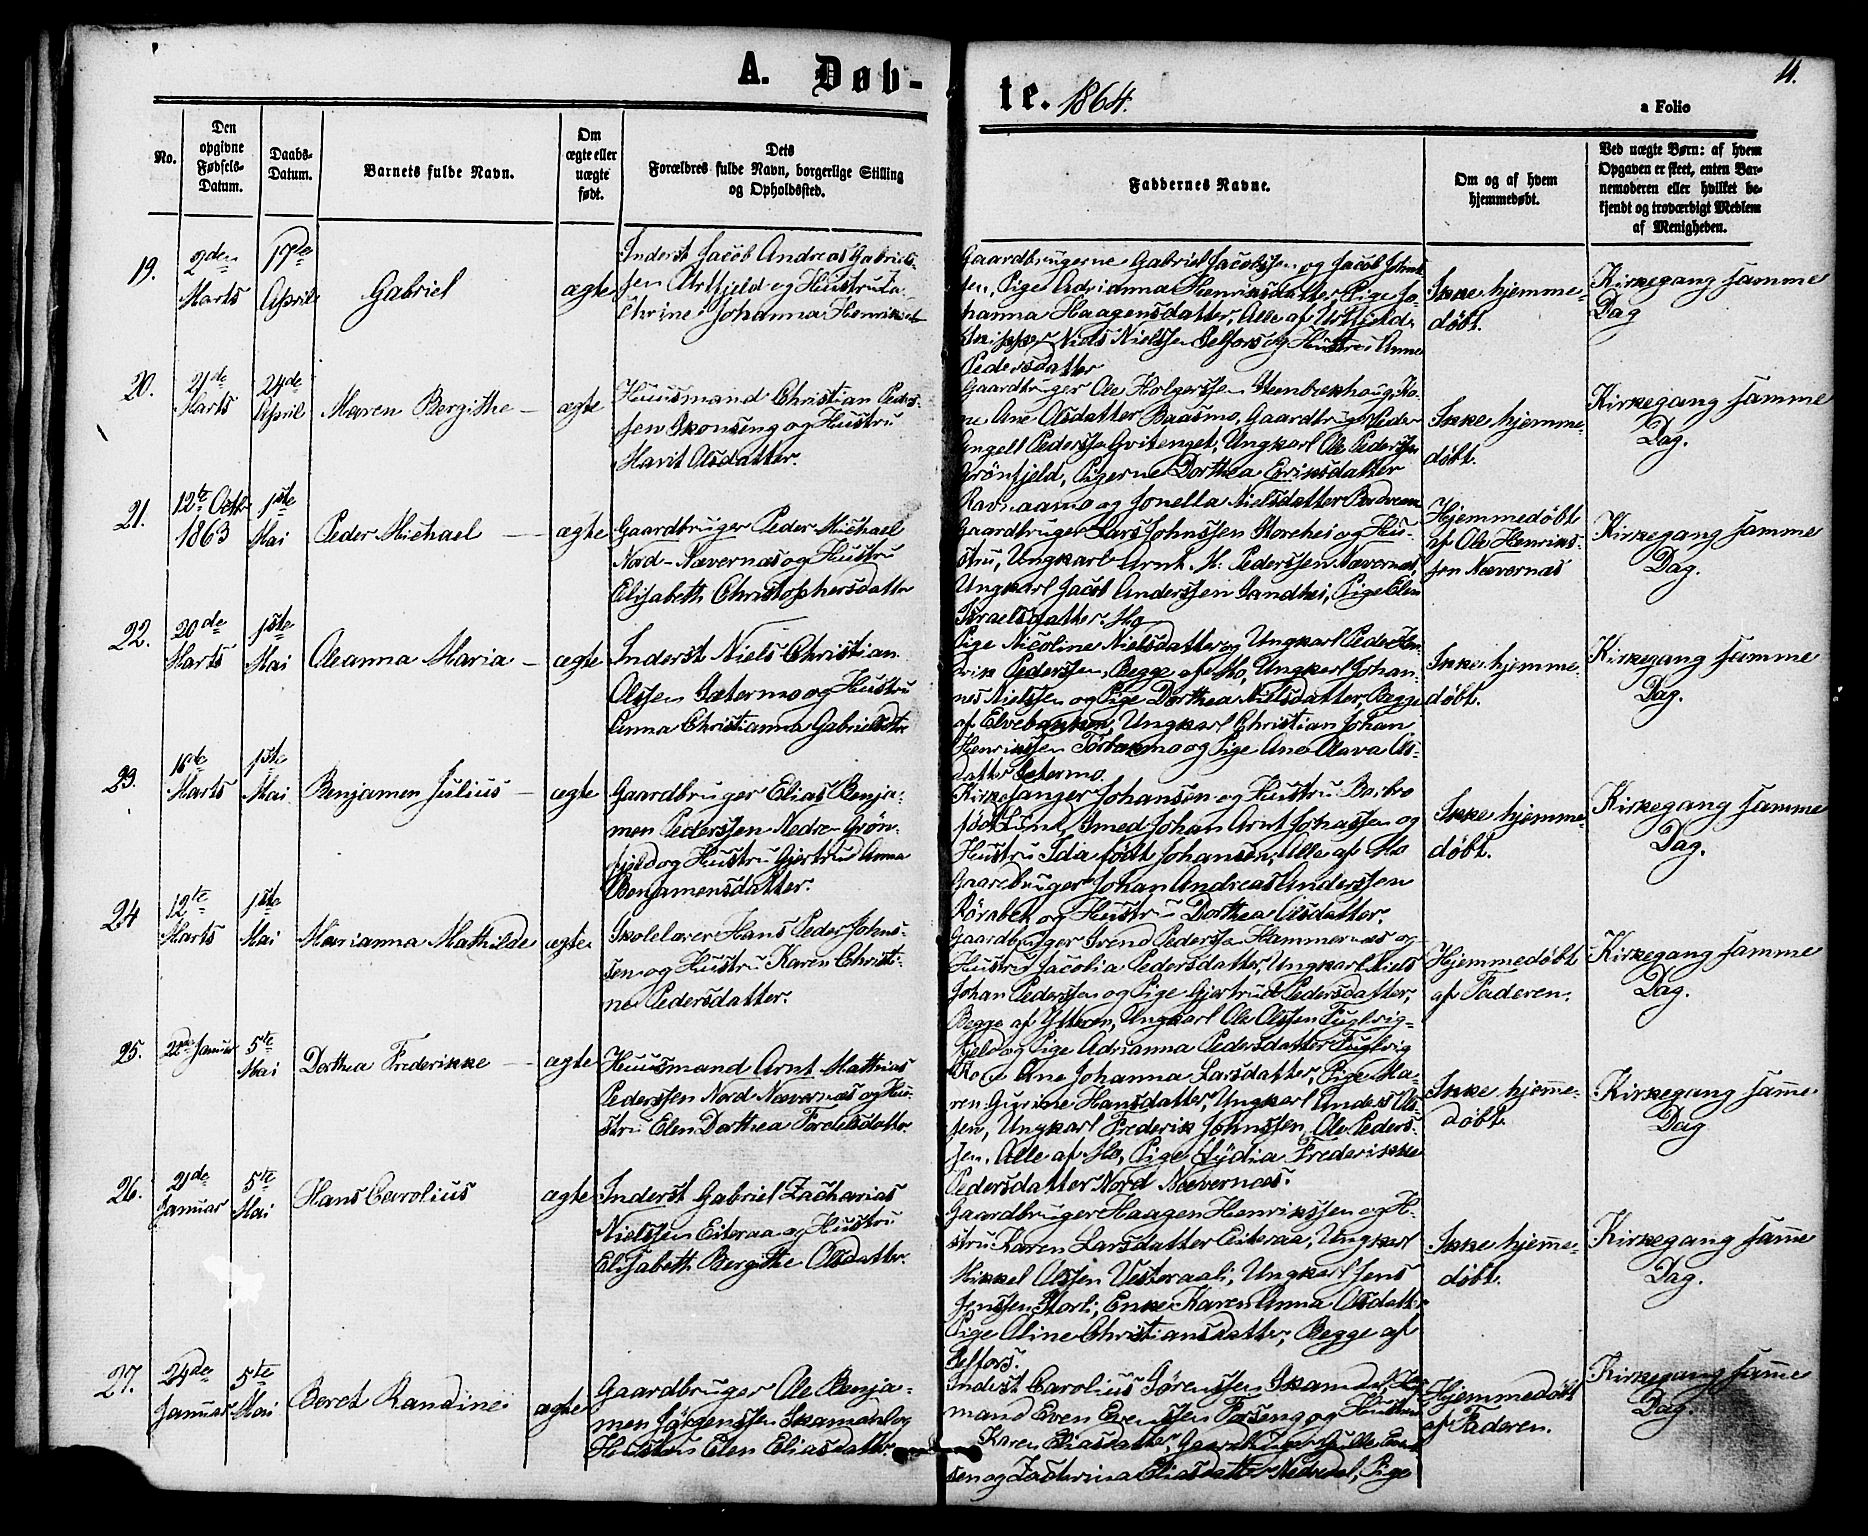 A. Døb-
te. 1864.
11.
a Folio
No.
Den opgivne Fødsels-Datum.
Daabs-Datum.
Barnets fulde Navn.
Om ægte eller uægte født.
Dets Forældres fulde Navn, borgerlige Stilling og Opholdssted.
Faddernes Navne.
Om og af hvem hjemmedøbt.
Ved uægte Børn: af hvem Opgaven er skeet, enten Barnemoderen eller hvilket bekjendt og troværdigt Medlem af Menigheden.
19.
2den Marts
17de April
Gabriel
ægte
Inderst Jacob Andreas Gabriel-
sen Urtfjeld og Hustru Ca-
thrine Johanna Henriksd
Gaardbrugerne Gabriel Jacobssen og Jacob Johns-
sen, Pige Adrianna Henriksdatter, Pige Jo-
hanna Haagensdatter, Alle af Urtfjeld,
Skipper Niels Nielssen Selfors og Hustru Anne
Pedersdatter
Ikke hjemme-
døbt.
Kirkegang samme
Dag
20.
21de Marts
24de April
Maren Bergithe
ægte
Huusmand Christian Peder-
sen Skonseng og Hustru
Marit Olsdatter.
Gaardbruger Ole Holgerssen Stenbekhaug, Ko-
ne Ane Olsdatter Baasmo, Gaardbruger Peder
Engell Pederssen Hvitenget, Ungkarl Ole Pederssen
Grönfjeld, Pigerne Dorthea Eriksdatter
Ravnaamo og Jonella Nielsdatter
Ikke hjemme-
døbt.
Kirkegang samme
Dag.
21.
12te Octb 1863
1ste Mai
Peder Michael
ægte
Gaardbruger Peder Michael
Nord-Nævernæs og Hustru
Elisabeth Christophersdatter
Gaardbruger Lars Johnssen Storehei og Hu-
stru, Ungkarl Arnt M: Pederssen Nævernæs,
Ungkarl Jacob Anderssen Sandhei, Pige Elen
Israelsdatter Mo
Hjemmedøbt
af Ole Henriks-
sen Nævernæs
Kirkegang samme
Dag.
22.
20de Marts
1ste Mai
Oleanna Maria
ægte
Inderst Niels Christian
Olssen Sætermo og Hustru
Anna Christianna Gabrielsdtr
Pige Nicoline Nielsdatter og Ungkarl Peder Hen-
drik Pederssen, Begge af Mo, Ungkarl Johan-
nes Nielssen og Pige Dorthea Nilsdatter, Begge
af Elvebakken, Ungkarl Christian Johan
Henrikssen Torbakmo og Pige Ane Olava Ols-
datter Sætermo.
Ikke hjemme-
døbt.
Kirkegang samme
Dag.
23.
16de Marts
1ste Mai
Benjamen Julius
ægte
Gaardbruger Elias Benja-
men Pederssen Nedre-Grön-
fjeld og Hustru Gjertrud Anna
Benjamensdatter.
Kirkesanger Johansen og Hustru Barbro
født Lind, Smed Johan Arnt Johassen og
Hustru Ida født Johansen, Alle af Mo
Gaardbruger Johan Andreas Anderssen
og Hustru Dorthea Olsdatter.
Ikke hjemme-
døbt.
Kirkegang samme
Dag.
24
12te Marts
1ste Mai
Marianna Mathilde
ægte
Skolelærer Hans Peder Johns-
sen og Hustru Karen Christi-
ne Pedersdatter.
Gaardbruger Svend Pederssen Hammernæs og
Hustru Jacobia Pedersdatter, Ungkarl Niels
Johan Pederssen og Pige Gjertrud Pedersdatter,
Begge af Ytteren, Ungkarl Ole Olssen Fuglvig-
fjeld og Pige Adrianna Pedersdatter Fuglvig
Hjemmedøbt
af Faderen.
Kirkegang samme
Dag.
25.
22de Januar
5te Mai
Dorthea Frederikke
ægte
Huusmand Arnt Mathias
Pederssen Nord Nævernæs og Hu-
stru Elen Dorthea Fordelsdatter.
Kone Ane Johanna Larsdatter, Pige Ma-
ren Gurine Hansdatter, Ungkarl Anders Ols-
sen, Ungkarl Frederik Johnssen, Ole Peders-
sen, Alle af Mo, Pige Lydia Frederikke
Pedersdatter Nord Nævernæs.
Ikke hjem̄e-
døbt.
Kirkegang sam̄e
Dag
26.
21de Januar
5te Mai
Hans Carolius
ægte
Inderst Gabriel Zacharias
Nielssen Eiteraa og Hustru
Elisabeth Bergithe Olsdatter.
Gaardbruger Haagen Henrikssen og Hu-
stru Karen Larsdatter Eiteraa, Ungkarl
Mikkel Olssen Vesteraali, Ungkarl Jens
Jenssen Storli, Enke Karen Anna Olsdatter
Pige Oline Christiansdatter, Begge af
Selfors.
Ikke hjem̄e-
døbt.
Kirkegang sam̄e
Dag.
27.
24de Januar
5te Mai
Beret Randine
ægte
Gaardbruger Ole Benja-
men Jörgenssen Skamdahl og
Hustru Elen Eliasdatter
Inderst Carolius Sörenssen Skamdal, Hus-
mand Even Evenssen Forseng og Hustru
Karen Eliasdatter, Gaardbruger Ole Even-
sen og Zacharina Eliasdatter Nedredal, Pige
Hjemmedøbt
af Faderen.
Kirkegang sam̄e
Dag.